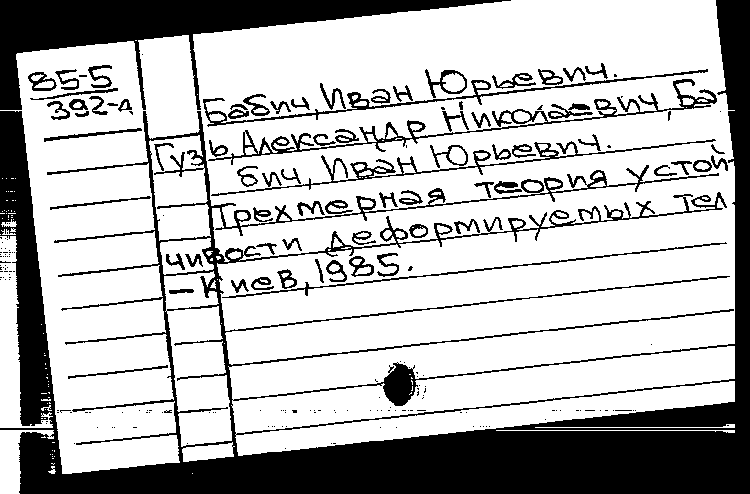 85-5
392-д
Бабич, Иван Юрьевич.
Гузь, Александр Николаевич, Ба-
бич, Иван Юрьевич.
Трехмерная теория устой-
чивости деформируемых тел.
— Киев, 1985.